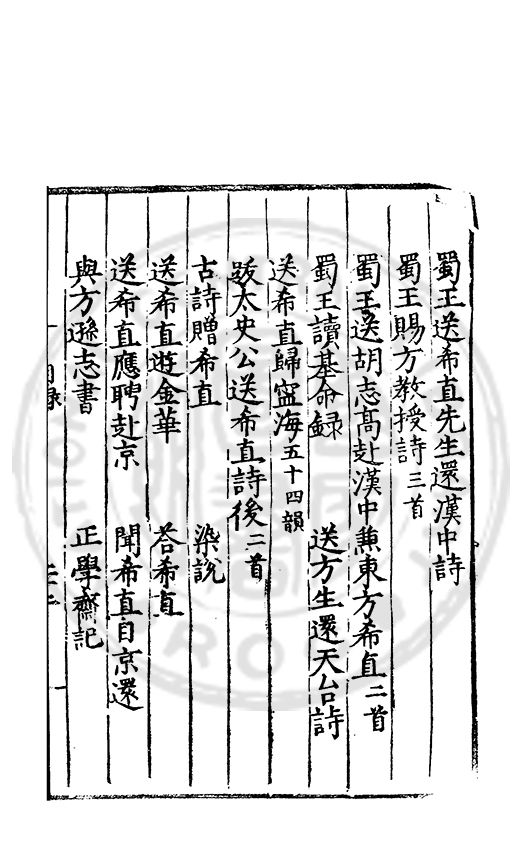 蜀王送希直先生還漢中詩
蜀王賜方教授詩三首
蜀王送胡志高赴漢中兼東方希直二首
蜀王讀基命録　送方生還天台詩
送希直歸寧海五十四韻
跋太史公送希直詩後二首
古詩贈希直　染說
送希直遊金華　荅希直
送希直應聘赴京　聞希直自京還
與方遜志書　正學齋記
目録